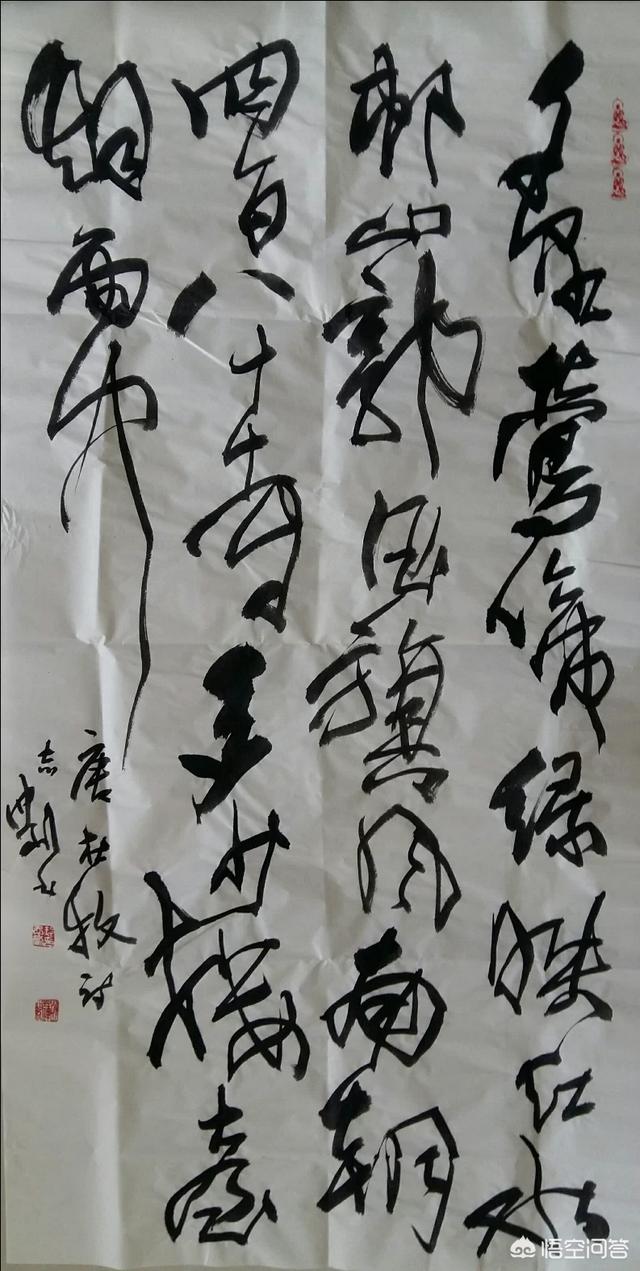 千里鶯啼绿映红水
邨山郭酒旗風南朝
四百八十寺多少樓臺
烟雨中
唐杜牧诗
志
悟空问答